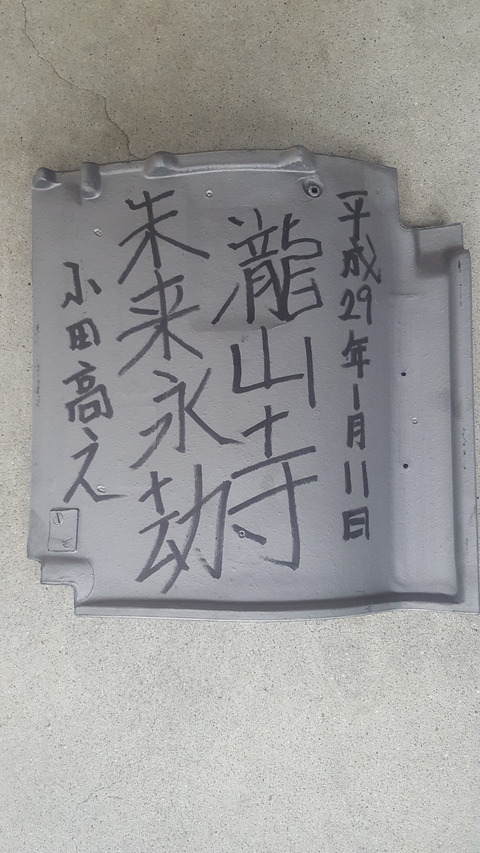 平成29年1月11日
瀧山寺
未来永劫
小田高之